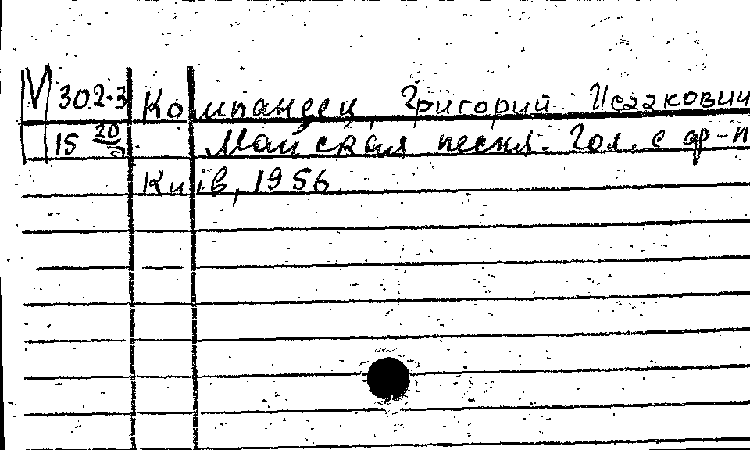 М 302-3 Компанеец, Григорий Исаакович
15 20 Майская песня. Гол. с ф-п
Київ, 1956